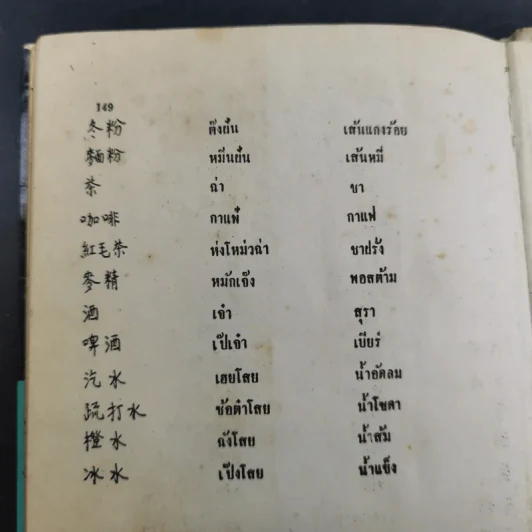 149
冬粉 ตึงยั๋น เส้นแกงร้อย
麵粉 หมีนยั๋น เส้นหมี่
茶 ฉ่า ชา
咖啡 กาแพ๋ กาแฟ
紅毛茶 ห่งโหม่วฉ่า ชาฝรั่ง
參精 หมักเจ๊ง พอสต้าม
酒 เจ๋า สุรา
啤酒 เป๊เจ๋า เบียร์
汽水 เฮยโสย น้ำอัดลม
疏打水 ซ้อต๋าโสย น้ำโซดา
橙水 ฉังโสย น้ำส้ม
冰水 เป๊งโสย น้ำแข็ง